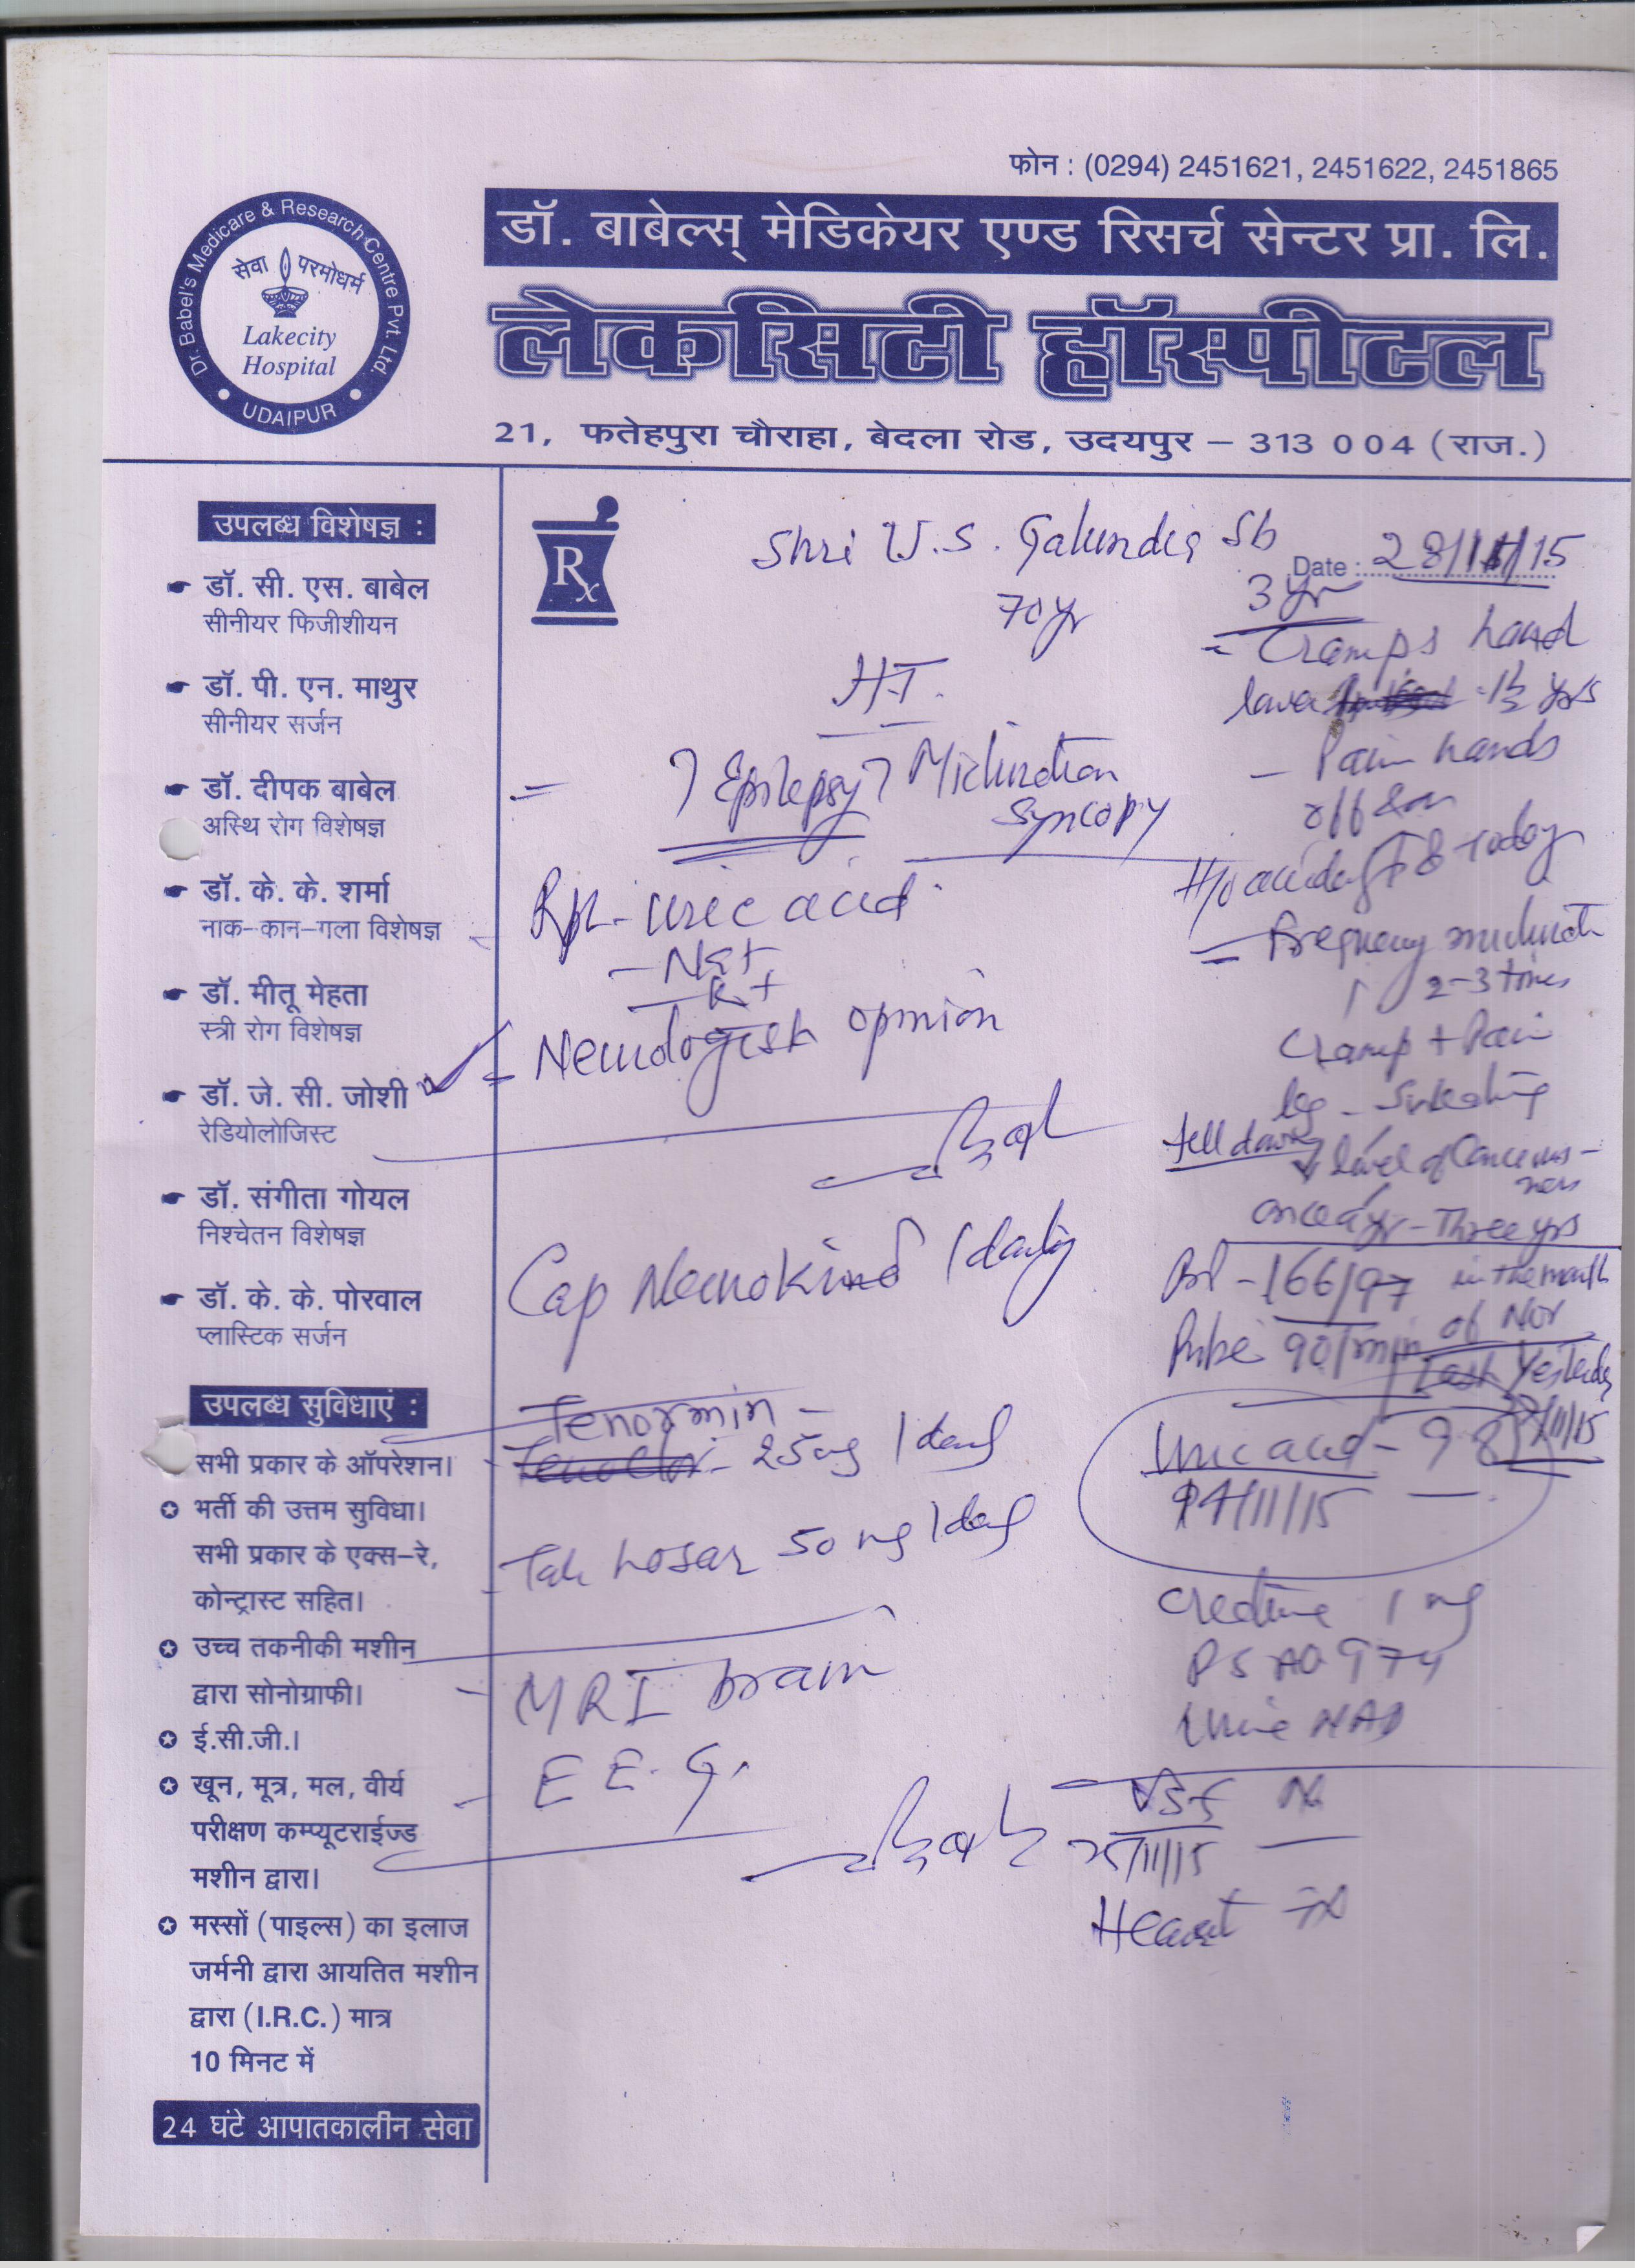 फोन : (0294) 2451621, 2451622, 2451865
Dr. Babel's Medicare & Research Centre Pvt. Ltd.
सेवा परमोधर्म
Lakecity
Hospital
UDAIPUR
डॉ. बाबेल्स् मेडिकेयर एण्ड रिसर्च सेन्टर प्रा. लि.
लेकसिटी हॉस्पीटल
21, फतेहपुरा चौराहा, बेदला रोड, उदयपुर – 313 004 (राज.)
उपलब्ध विशेषज्ञ :
डॉ. सी. एस. बाबेल
सीनीयर फिजीशीयन
डॉ. पी. एन. माथुर
सीनीयर सर्जन
डॉ. दीपक बाबेल
अस्थि रोग विशेषज्ञ
डॉ. के. के. शर्मा
नाक-कान-गला विशेषज्ञ
डॉ. मीतू मेहता
स्त्री रोग विशेषज्ञ
डॉ. जे. सी. जोशी
रेडियोलोजिस्ट
डॉ. संगीता गोयल
निश्चेतन विशेषज्ञ
डॉ. के. के. पोरवाल
प्लास्टिक सर्जन
उपलब्ध सुविधाएं :
सभी प्रकार के ऑपरेशन।
भर्ती की उत्तम सुविधा।
सभी प्रकार के एक्स-रे,
कोन्ट्रास्ट सहित।
उच्च तकनीकी मशीन
द्वारा सोनोग्राफी।
ई.सी.जी.।
खून, मूत्र, मल, वीर्य
परीक्षण कम्प्यूटराईज्ड
मशीन द्वारा।
मस्सों (पाइल्स) का इलाज
जर्मनी द्वारा आयतित मशीन
द्वारा (I.R.C.) मात्र
10 मिनट में
24 घंटे आपातकालीन सेवा
Rx
Shri U.S. Galundia Sb
Date : 28/11/15
70 yr
HT.
? Epilepsy ? Micturation
Syncopy
Rpt - uric acid
- Neurologist opinion
Cap Neurokind 1 daily
Tenormin -
25mg 1 daily
Tab Losar 50 mg 1 daily
- MRI brain
- E E. G.
3 yr
= Cramps hand
1½ yrs
- Pain hands
off & on
today
= Frequency
2-3 times
Cramp + Pain
leg - Sweating
fell down level of Conciousness
once a yr - Three yrs
166/97 in the month
Pulse 90/min of Nov
Last Yesterday
Uric acid - 9.8
24/11/15
1 mg
Urine NAD
25/11/15
Heart